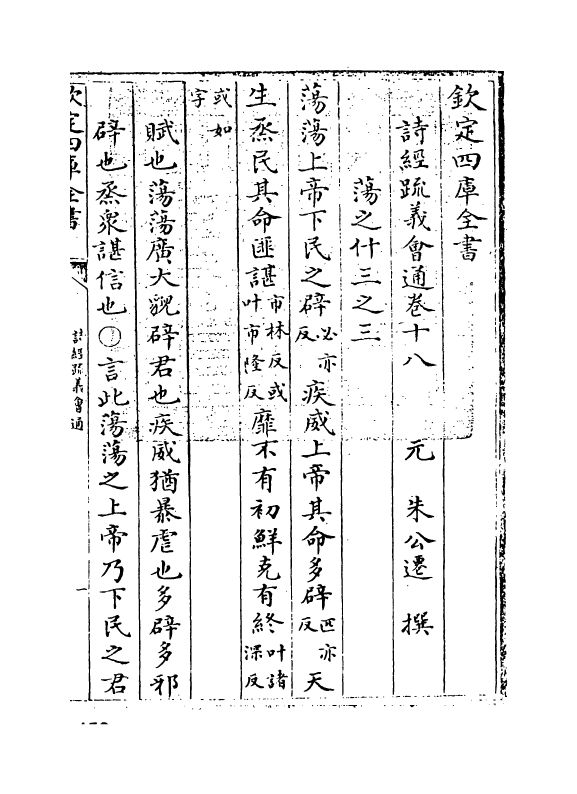 欽定四庫全書
詩經疏義會通卷十八　元　朱公遷　撰
蕩之什三之三
蕩蕩上帝下民之辟必亦反疾威上帝其命多辟匹亦反天
生烝民其命匪諶市林反或叶市隆反靡不有初鮮克有終叶諸深反
或如字
賦也蕩蕩廣大貌辟君也疾威猶暴虐也多辟多邪
辟也烝衆諶信也○言此蕩蕩之上帝乃下民之君
欽定四庫全書
詩經疏義會通
一